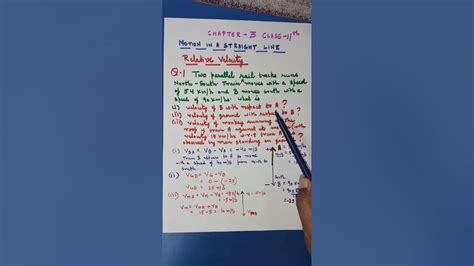 CHAPTER-3 CLASS-11th
MOTION IN A STRAIGHT LINE
Relative Velocity
Q.1 Two parallel rail tracks runs
North-South Train A moves with a speed
of 54 km/h and B moves south with a
speed of 90 km/hr. what is
(i) velocity of B with respect to A ?
(ii) velocity of ground with respect to B ?
(iii) velocity of monkey running on the
roof of train A against its motion with
velocity 18 km/h w.r.t train A
observed by man standing on ground
(i) VBA = VB - VA = -40 m/s
Train B appears to A to move
with a speed of 40 m/s from north to
south.
(ii) VGB = VG - VB
= 0 - (-25)
(iii)
= 15-5 = 10 m/s